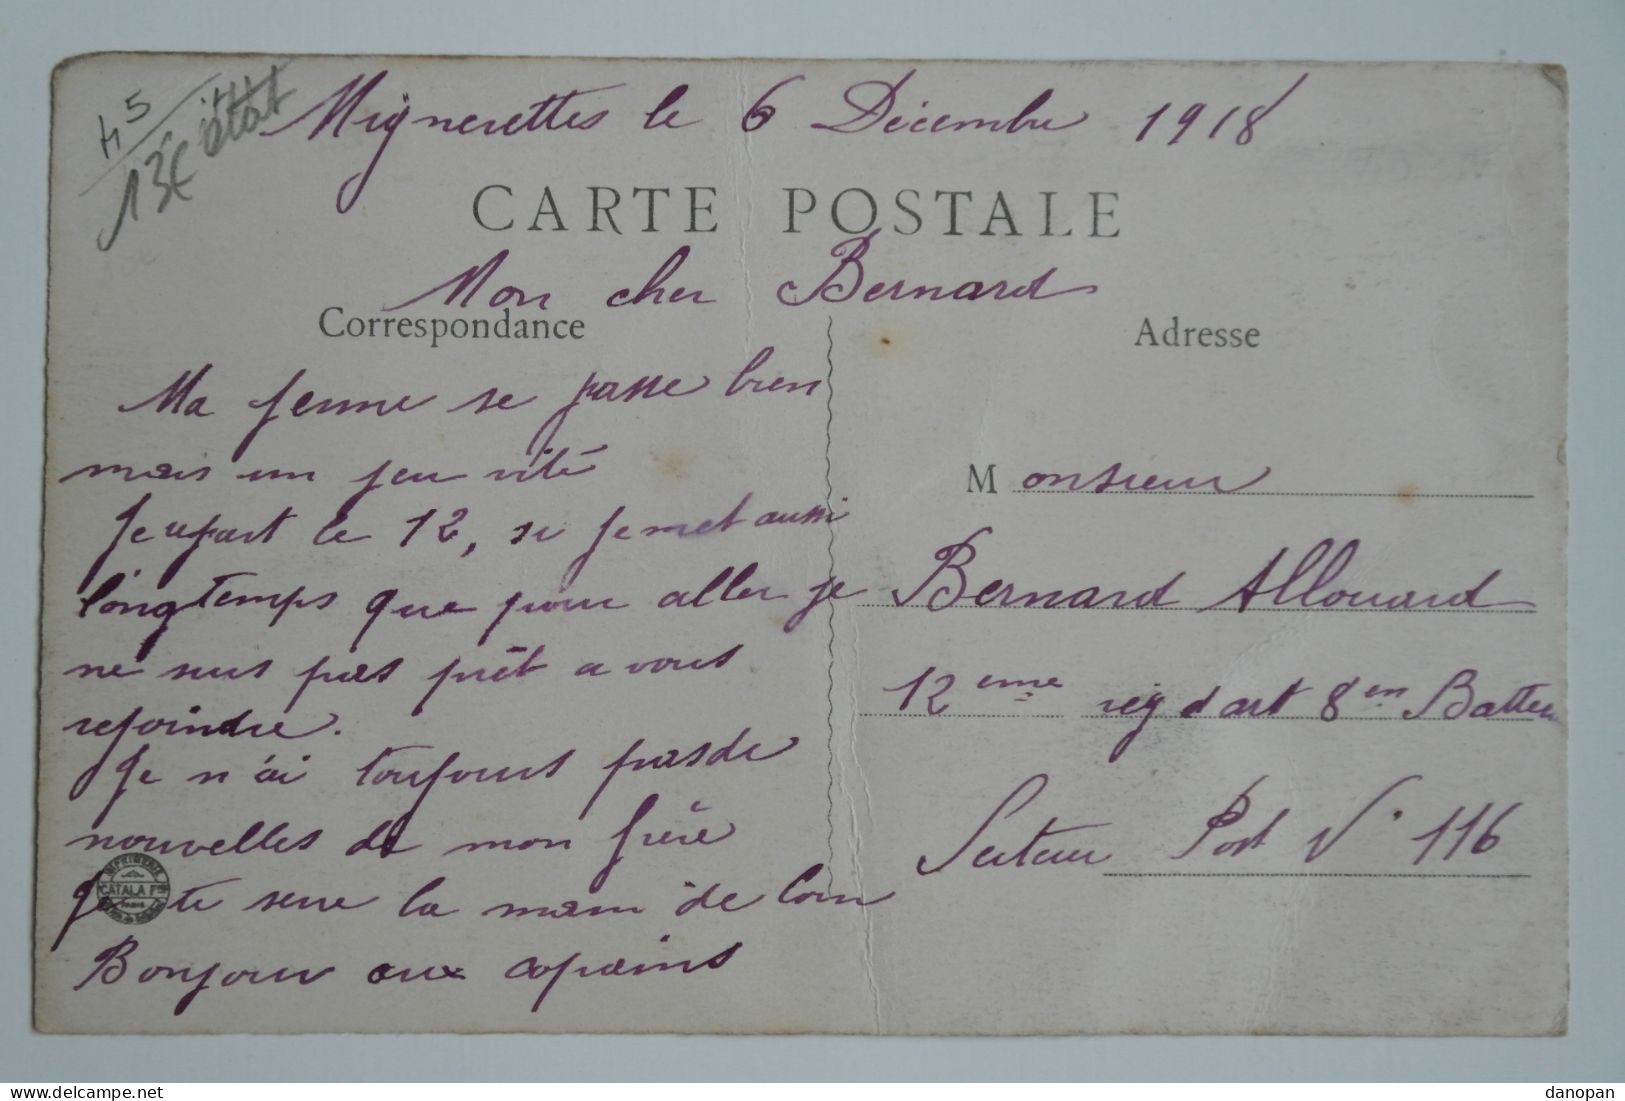 45
13€ état
Mignerettes le 6 Décembre 1918
CARTE POSTALE
Mon cher Bernard
Correspondance
Ma femme se passe bien
mais un peu vite
Je repart le 12, si je met aussi
longtemps que pour aller je
ne suis pas prêt a vous
rejoindre.
Je n'ai toujours pas de
nouvelles de mon frère
Je te serre la main de loin
Bonjour aux copains
Adresse
Monsieur
Bernard Allouard
12eme reg d'art 8en Batterie
Secteur Post N° 116
IMPRIMERIE
CATALA Frs
Paris
delcampe.net
danopan